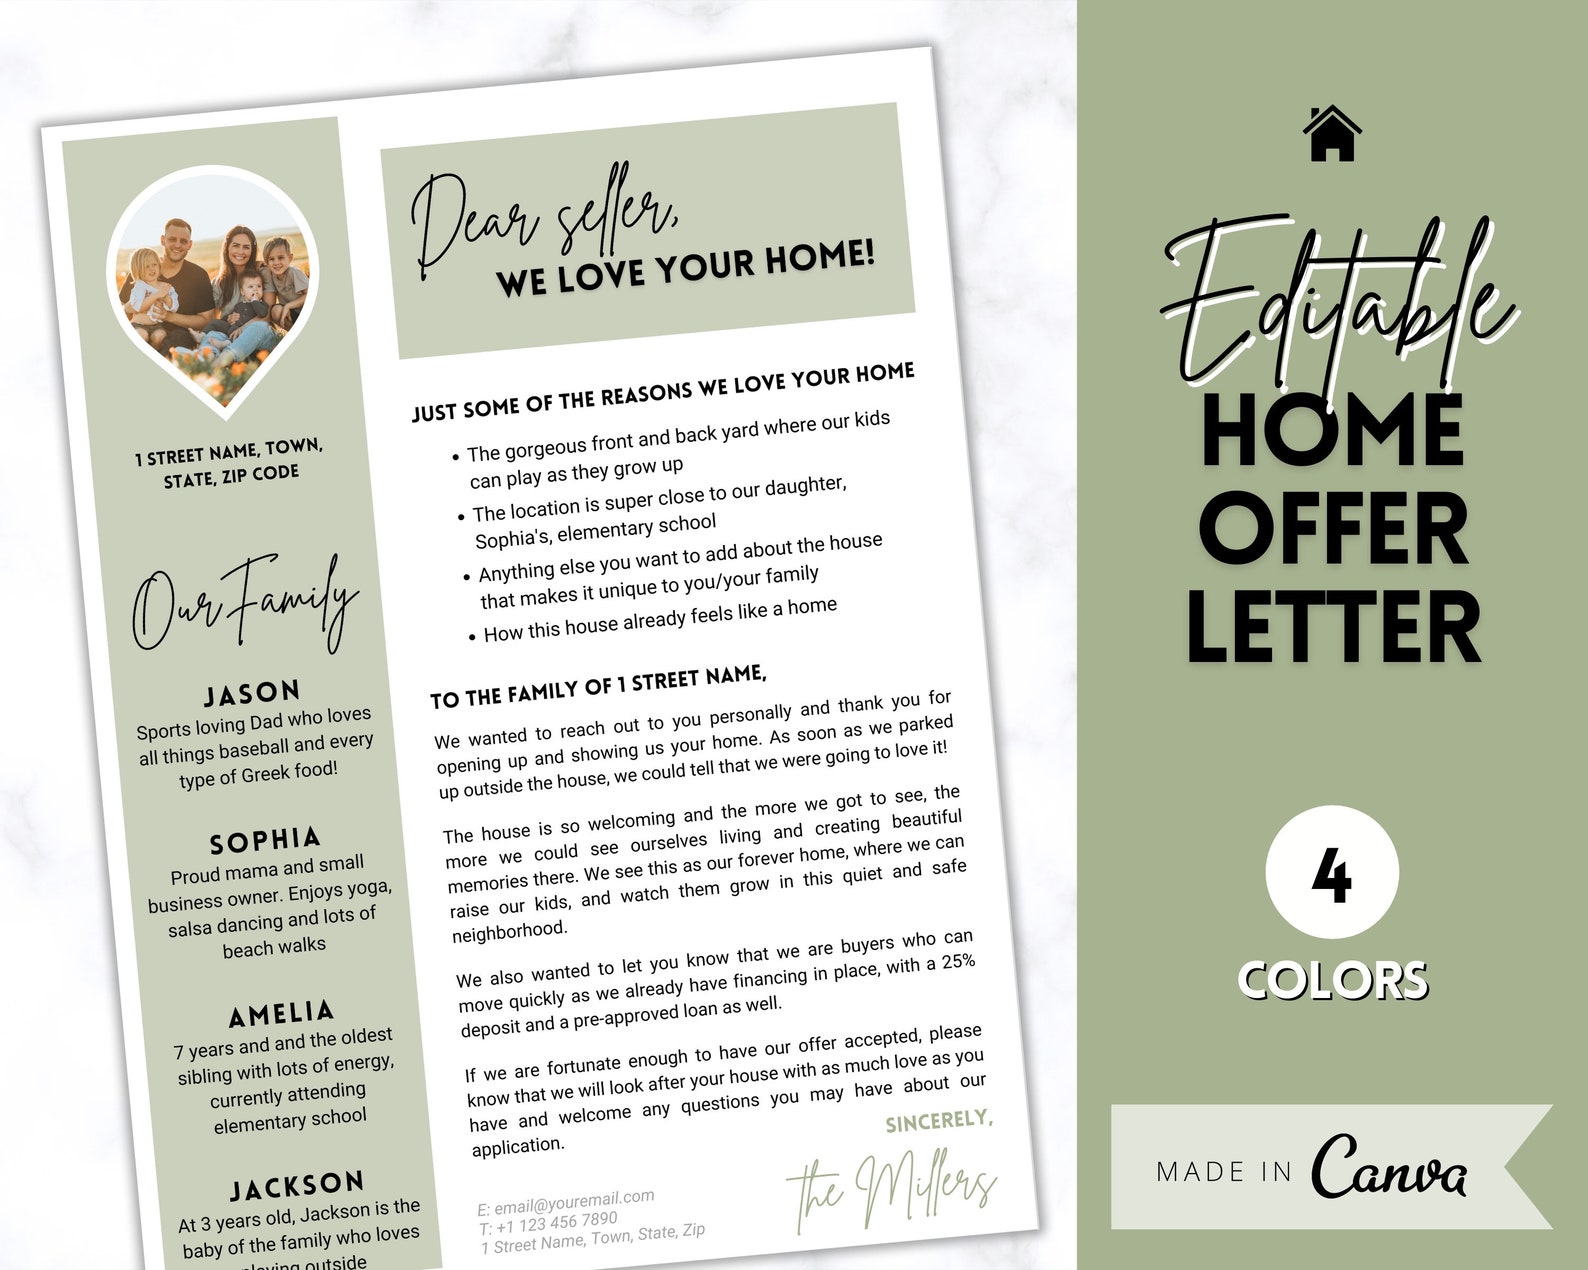 1 STREET NAME, TOWN,
STATE, ZIP CODE
Our Family
JASON
Sports loving Dad who loves
all things baseball and every
type of Greek food!
SOPHIA
Proud mama and small
business owner. Enjoys yoga,
salsa dancing and lots of
beach walks
AMELIA
7 years and and the oldest
sibling with lots of energy,
currently attending
elementary school
JACKSON
At 3 years old, Jackson is the
baby of the family who loves
playing outside
Dear seller,
WE LOVE YOUR HOME!
JUST SOME OF THE REASONS WE LOVE YOUR HOME
• The gorgeous front and back yard where our kids
can play as they grow up
• The location is super close to our daughter,
Sophia's, elementary school
• Anything else you want to add about the house
that makes it unique to you/your family
• How this house already feels like a home
TO THE FAMILY OF 1 STREET NAME,
We wanted to reach out to you personally and thank you for
opening up and showing us your home. As soon as we parked
up outside the house, we could tell that we were going to love it!
The house is so welcoming and the more we got to see, the
more we could see ourselves living and creating beautiful
memories there. We see this as our forever home, where we can
raise our kids, and watch them grow in this quiet and safe
neighborhood.
We also wanted to let you know that we are buyers who can
move quickly as we already have financing in place, with a 25%
deposit and a pre-approved loan as well.
If we are fortunate enough to have our offer accepted, please
know that we will look after your house with as much love as you
have and welcome any questions you may have about our
application.
SINCERELY,
the Millers
E: email@youremail.com
T: +1 123 456 7890
1 Street Name, Town, State, Zip
Editable
HOME
OFFER
LETTER
4
COLORS
MADE IN Canva